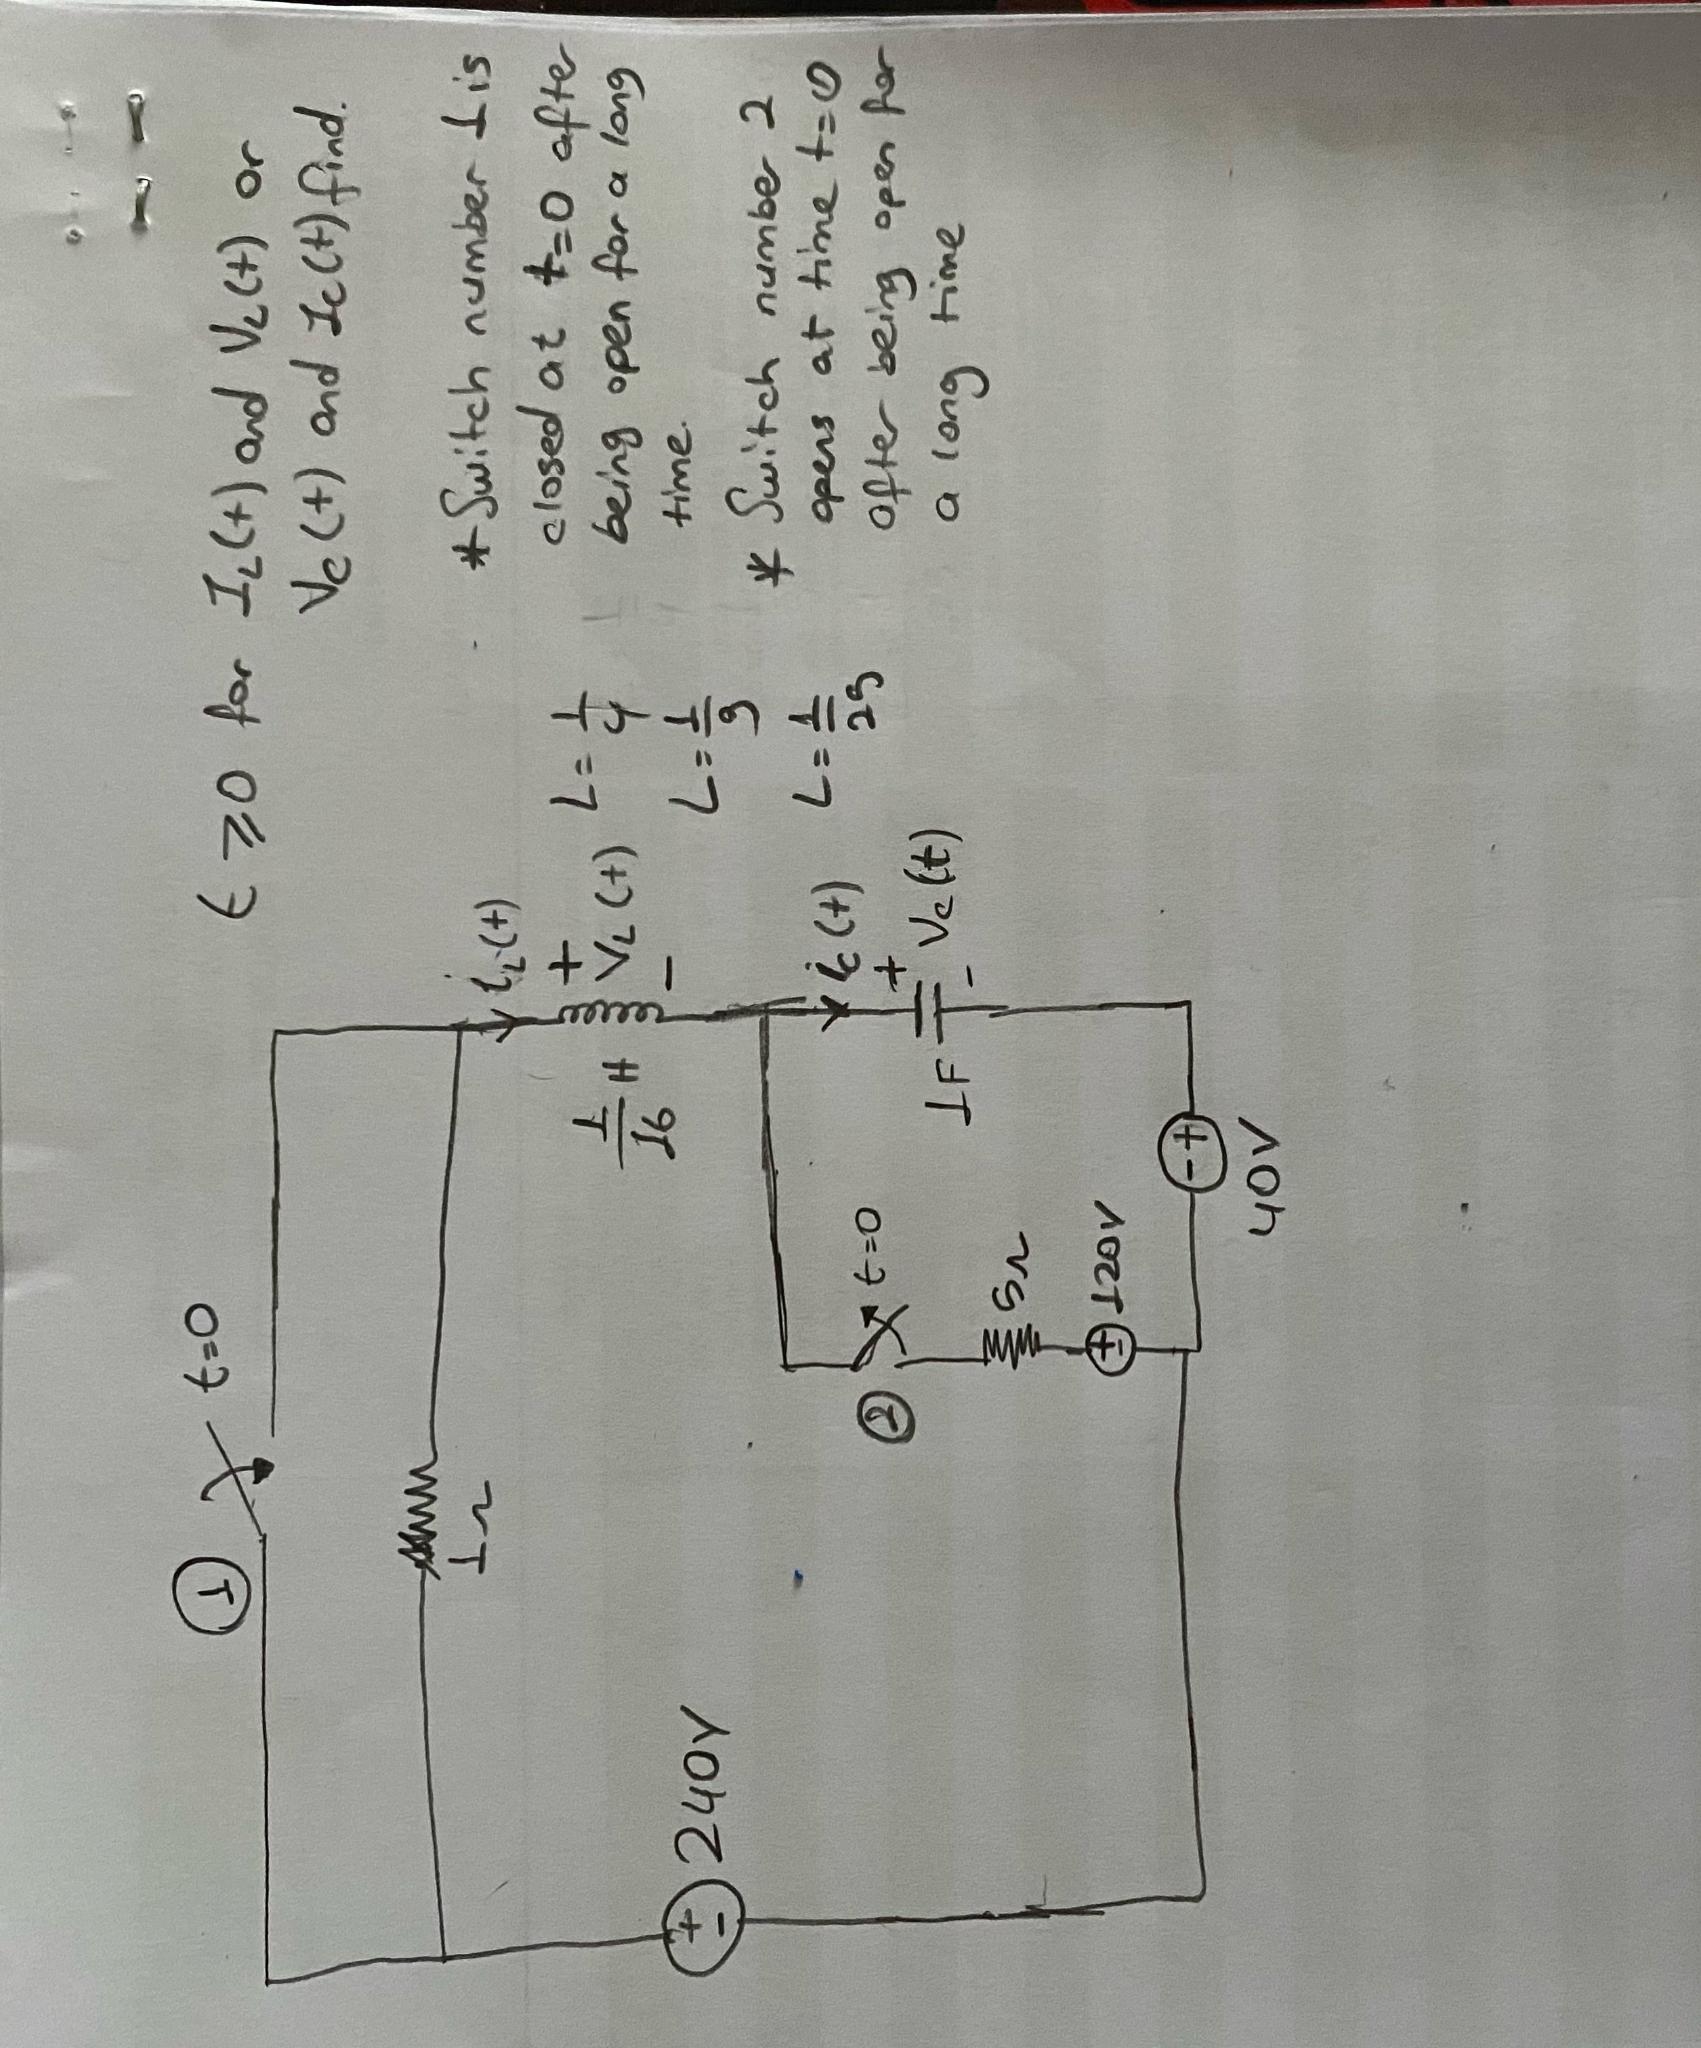 t ≥ 0 for I_L(t) and V_L(t) or
V_c(t) and I_c(t) find.
* Switch number 1 is
closed at t=0 after
being open for a long
time.
* Switch number 2
opens at time t=0
after being open for
a long time
① t=0
1Ω
240V
+
-
i_L(t)
1/16 H
+
V_L(t)
-
L = 1/4
L = 1/9
L = 1/25
② t=0
5Ω
120V
+
-
i_c(t)
1F
+
V_c(t)
-
- +
40V